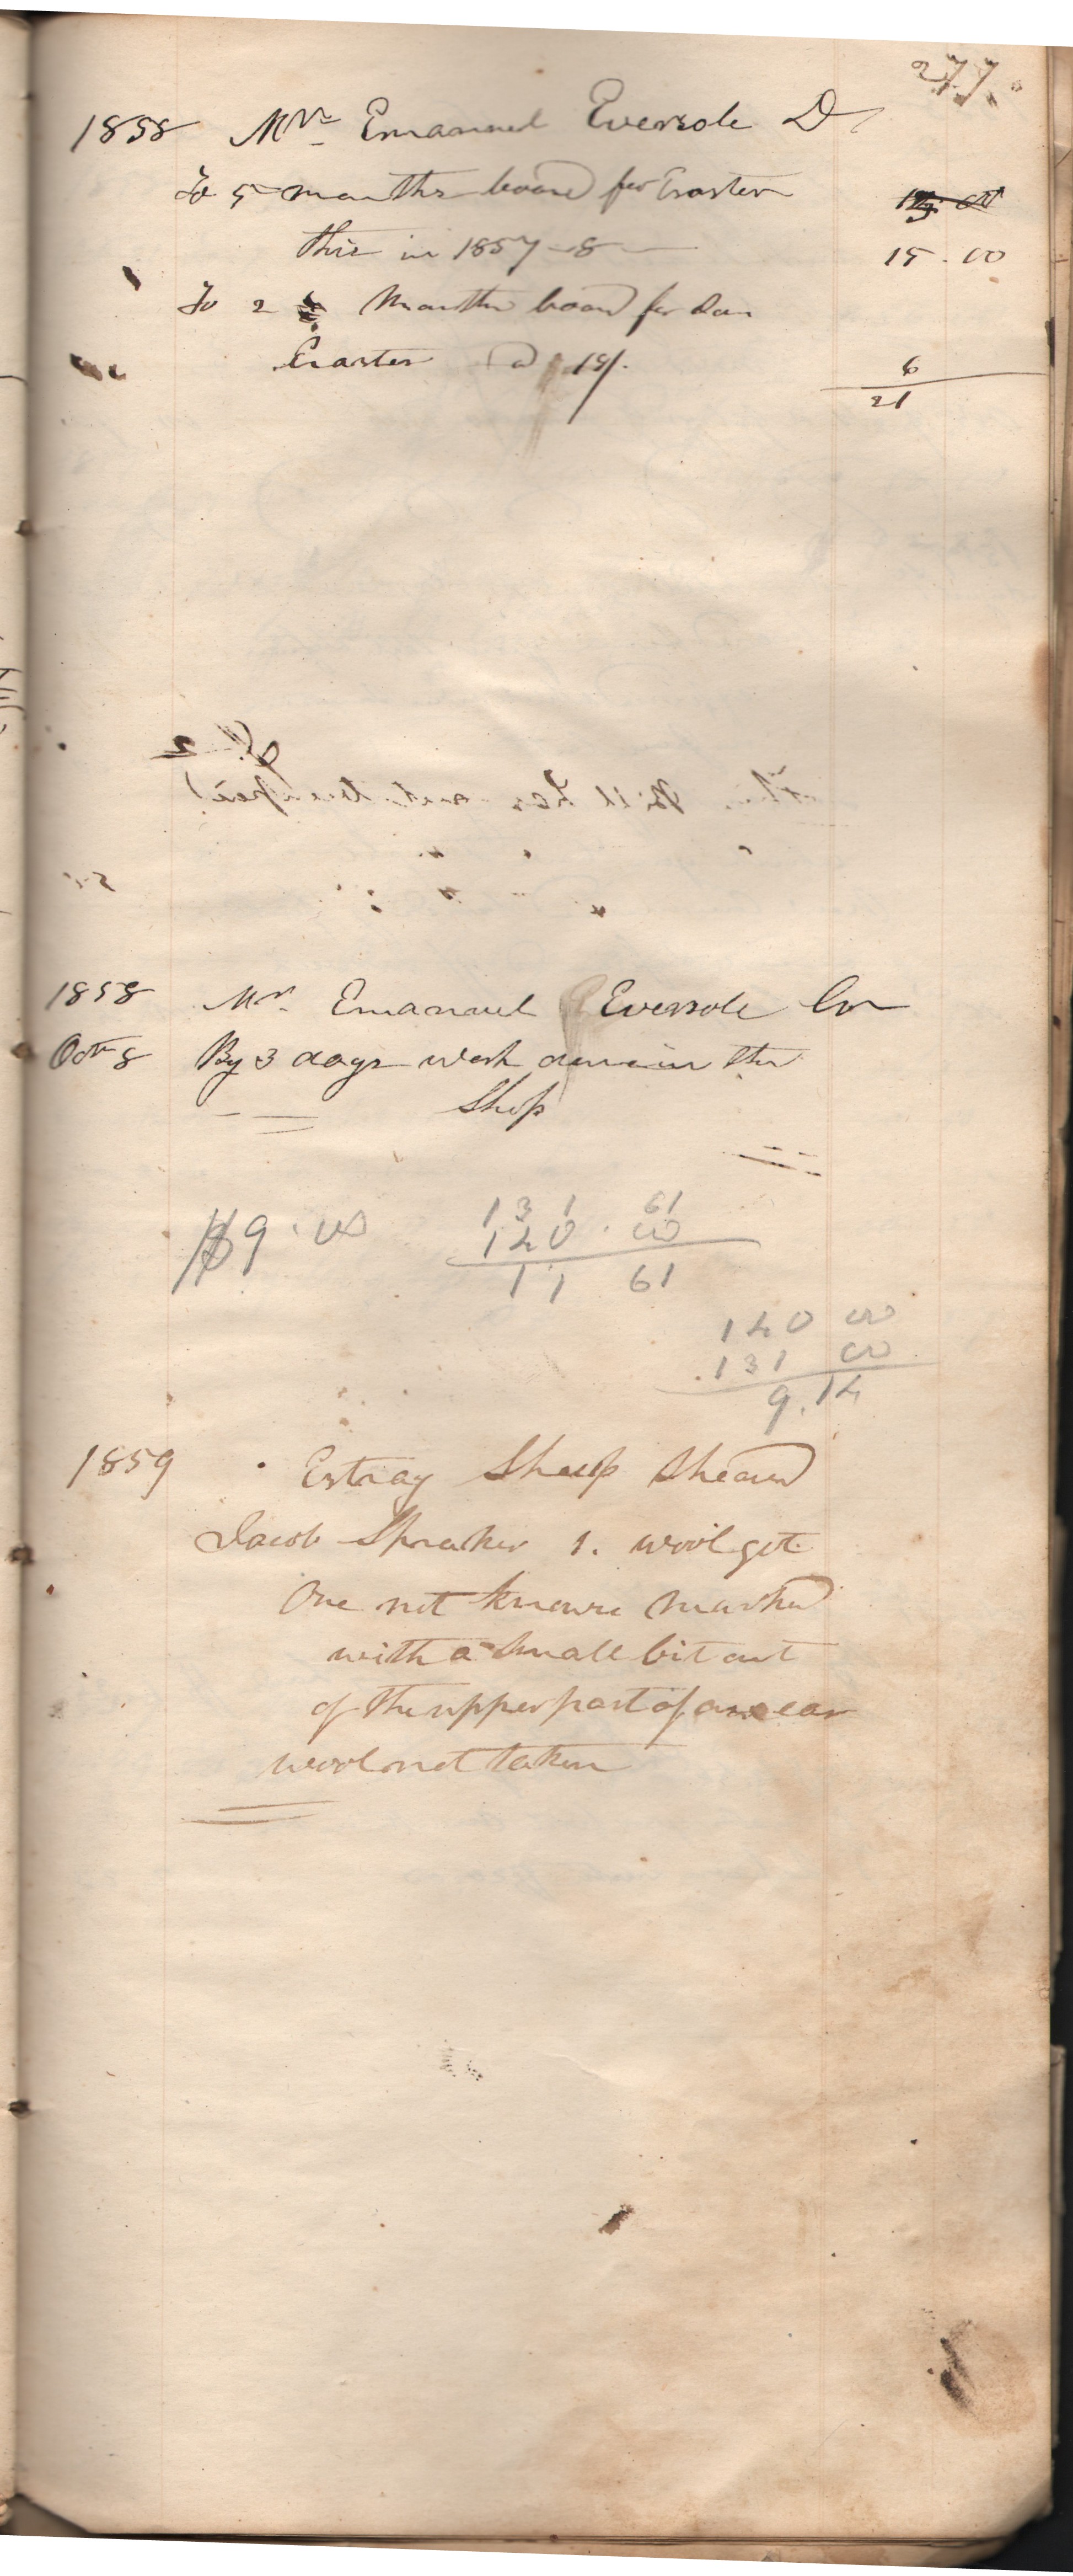 277.
1858 Mr. Emanuel Eversole Dr
To 5 months board for Eraster
this in 1857-8 15.00
To 2 Months board for son
Eraster @ 6
21
This Bill has not been paid
1858 Mr. Emanuel Eversole Cr
Octr 8 By 3 days work done in the
Shop
$9.00 131 61
140.00
11 61
140 00
131 00
9.14
1859 Estray Sheep Sheared
Jacob Spraker 1. wool get
One not knowne marked
with a small bit out
of the upper part of an ear
wool not taken